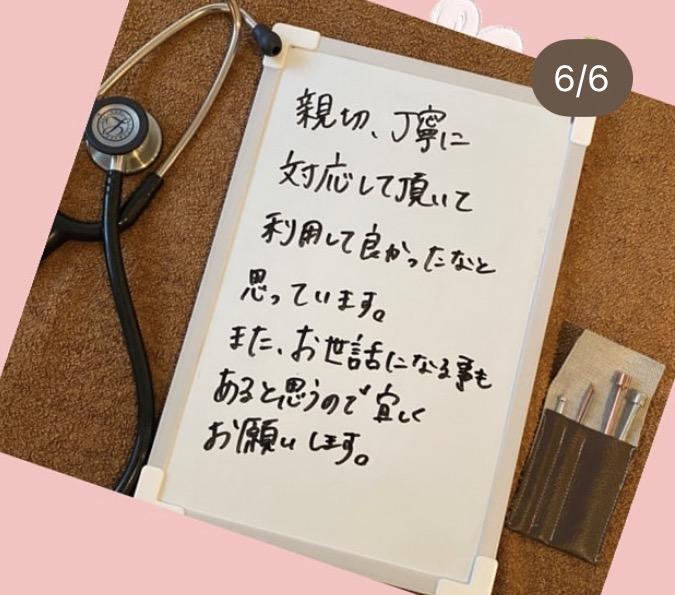 6/6
親切、丁寧に
対応して頂いて
利用して良かったなと
思っています。
また、お世話になる事も
あると思うので宜しく
お願いします。